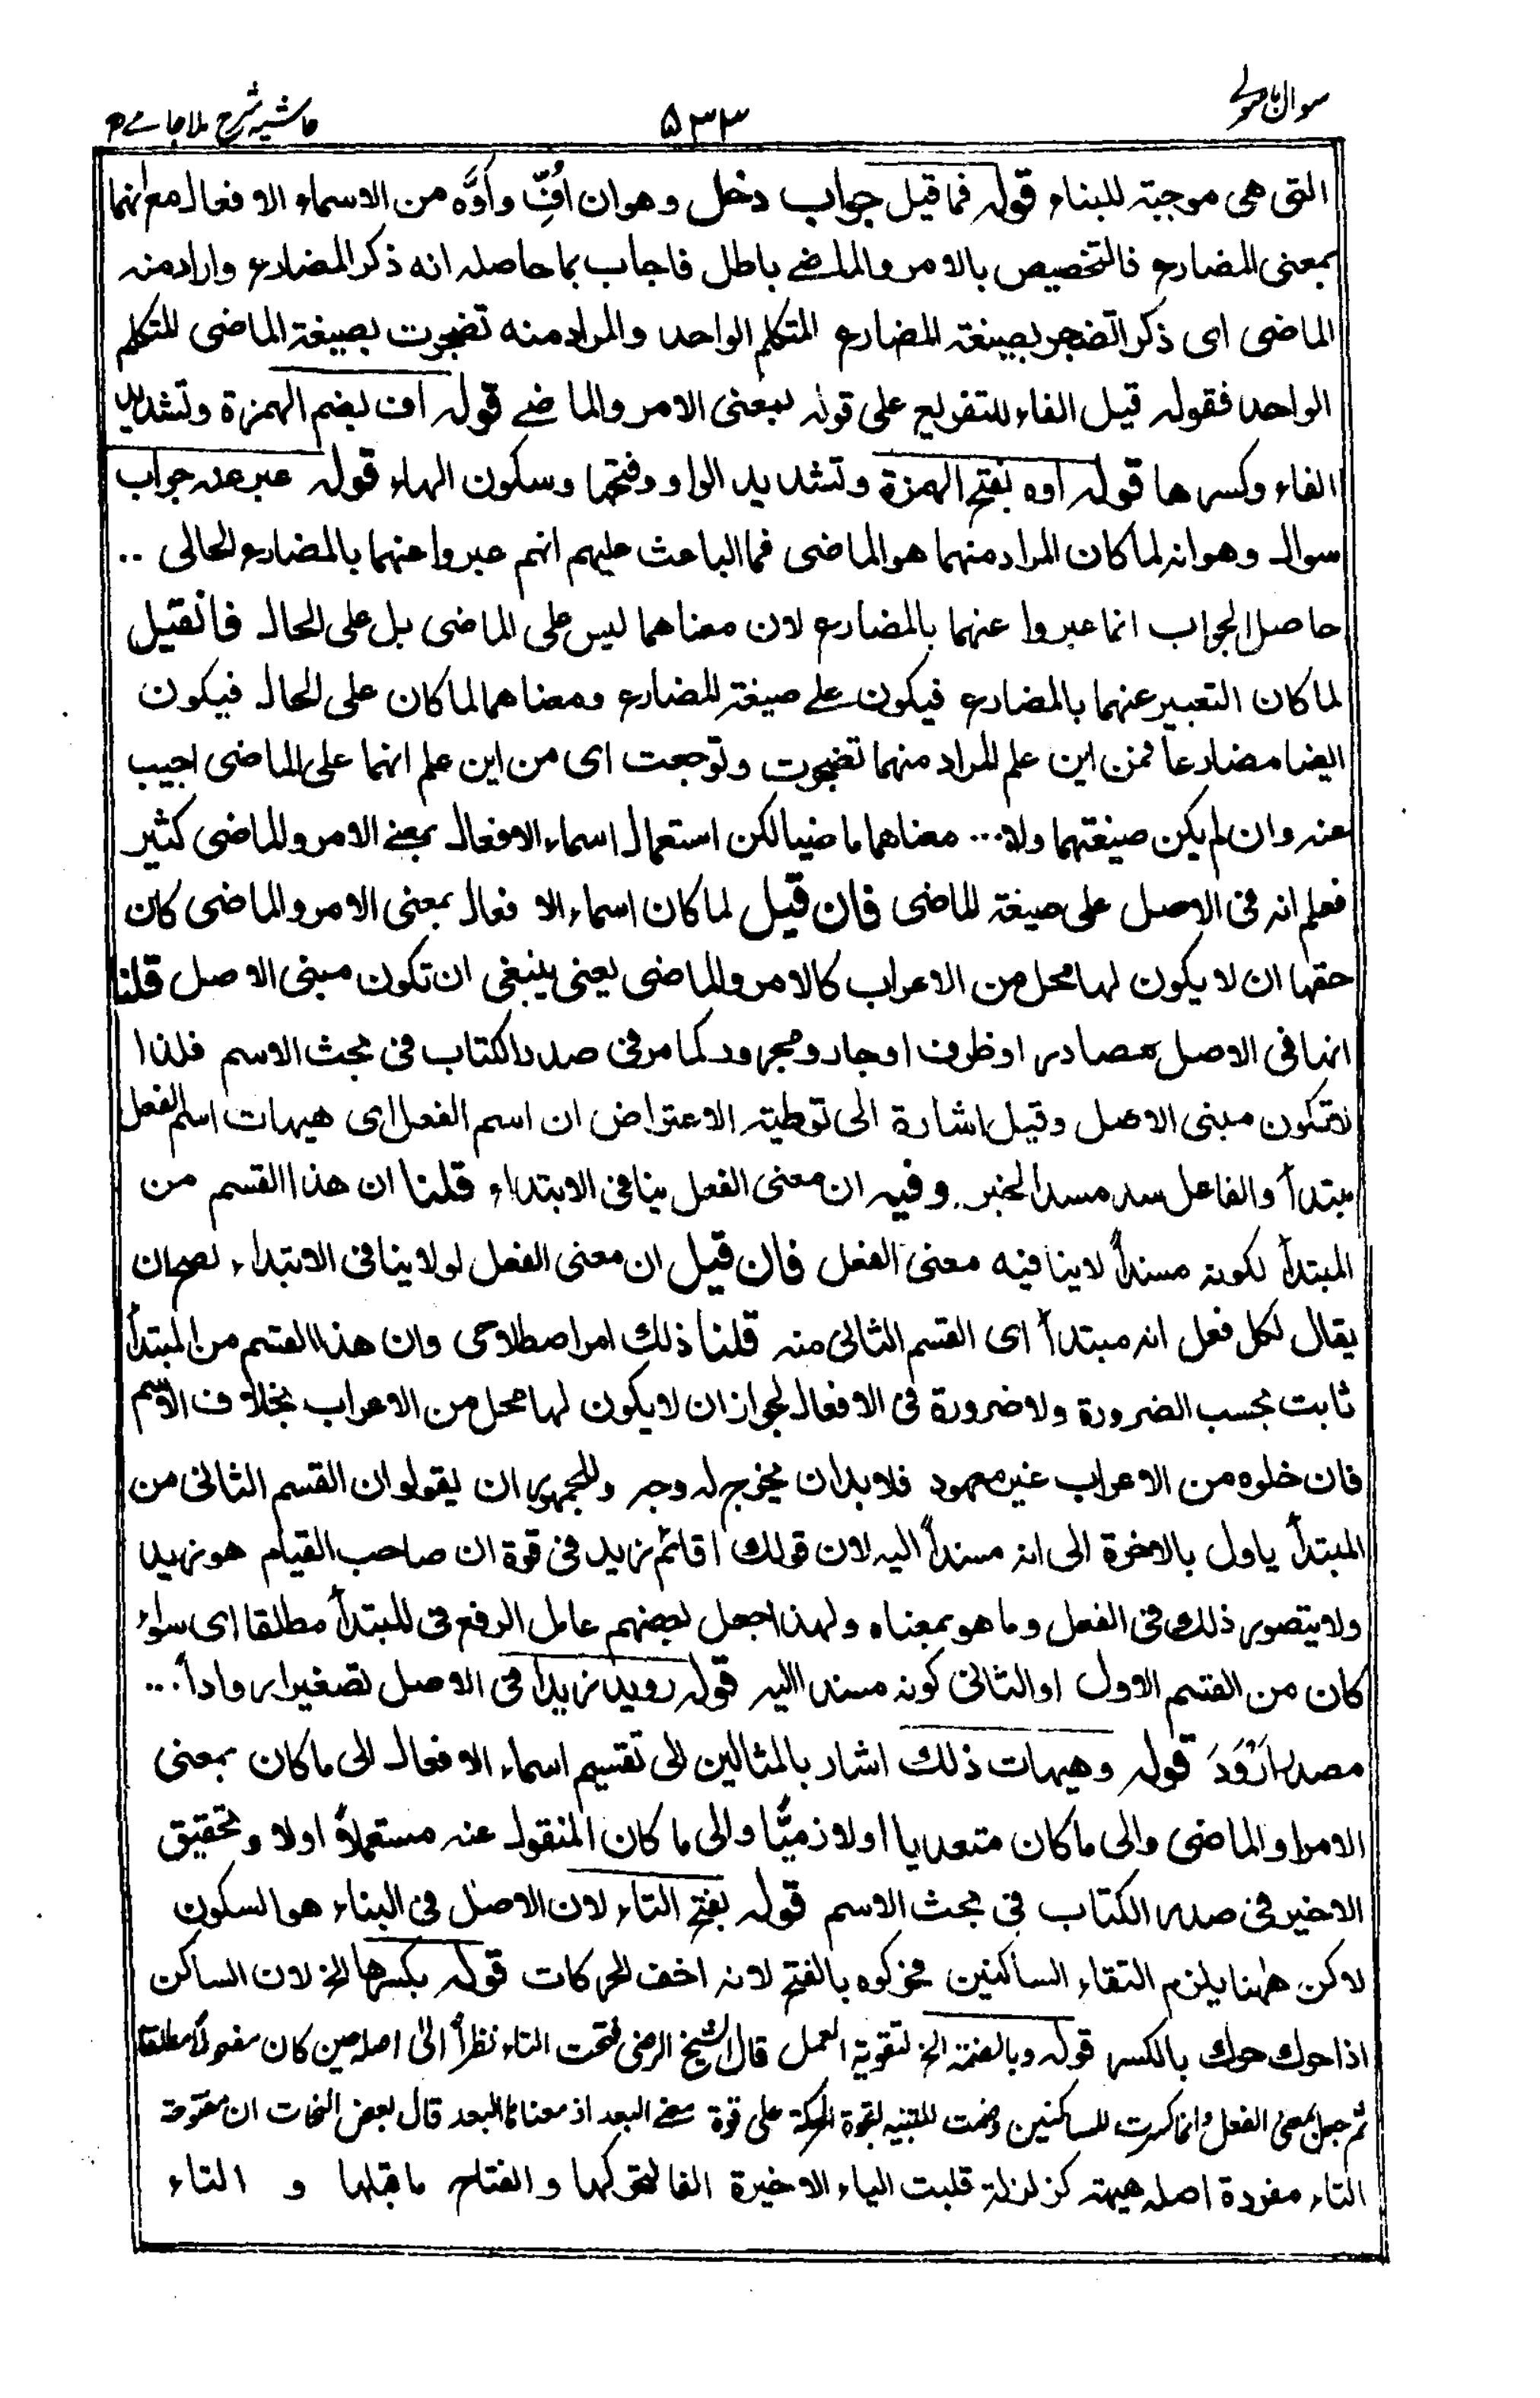 سوال باسولی ۵۳۳ حاشیہ شرح ملا جامی
التی هی موجبة للبناء قوله فما قیل جواب دخل وهو ان اُفِّ واَوَّه من الاسماء الافعال مع انهما
بمعنی المضارع فالتخصیص بالامر والماضے باطل فاجاب بما حاصله انه ذکر المضارع واراد منه
الماضی ای ذکر التضجر بصیغة المضارع المتکلم الواحد والمراد منه تضجرت بصیغة الماضی للمتکلم
الواحد فقوله قیل الفاء للتفریع علی قوله بمعنی الامر والماضے قوله اف بضم الهمزة وتشدید
الفاء وکسرها قوله اوه بفتح الهمزة وتشدید الواو وفتحها وسکون الهاء قوله عبر عنه جواب
سوال وهو انه لما کان المراد منهما هو الماضی فما الباعث علیهم انهم عبروا عنهما بالمضارع الحالی ..
حاصل الجواب انما عبروا عنهما بالمضارع لان معناهما لیس علی الماضی بل علی الحال فان قیل
لما کان التعبیر عنهما بالمضارع فیکون علے صیغة المضارع ومعناهما لما کان علی الحال فیکون
ایضا مضارعاً فمن این علم المراد منهما تضجرت وتوجعت ای من این علم انهما علی الماضی اجیب
عنه وان لم یکن صیغتهما ولا... معناهما ماضیا لکن استعمال اسماء الافعال بمعنے الامر والماضی کثیر
فعلم انه فی الاصل علی صیغة الماضی فان قیل لما کان اسماء الافعال بمعنی الامر والماضی کان
حقها ان لا یکون لها محل من الاعراب کالامر والماضی یعنی ینبغی ان تکون مبنی الاصل قلنا
انها فی الاصل مصادر او ظرف او جار ومجرور کما مر فی صدر الکتاب فی بحث الاسم فلذا
لا تکون مبنی الاصل وقیل اشارة الی توطیة الاعتراض ان اسم الفعل ای هیهات اسم الفعل
مبتدأ والفاعل سد مسد الخبر. وفیه ان معنی الفعل ینافی الابتداء قلنا ان هذا القسم من
المبتدأ لکونه مسنداً لا ینافیه معنی الفعل فان قیل ان معنی الفعل لو لا ینافی الابتداء لصح ان
یقال لکل فعل انه مبتدأ ای القسم الثانی منه قلنا ذلك امر اصطلاحی وان هذا القسم من المبتدأ
ثابت بحسب الضرورة ولا ضرورة فی الافعال لجواز ان لا یکون لها محل من الاعراب بخلاف الاسم
فان خلوه من الاعراب غیر معهود فلا بد ان یخرج له وجه وللجمهور ان یقولوا ان القسم الثانی من
المبتدأ یاول بالاخرة الی انه مسنداً الیه لان قولك اقائم زید فی قوة ان صاحب القیام هو زید
ولا یتصور ذلك فی الفعل وما هو بمعناه ولهذا جعل بعضهم عامل الرفع فی المبتدأ مطلقا ای سواء
کان من القسم الاول او الثانی کونه مسندا الیه قوله روید زیدا فی الاصل تصغیر ارواداً...
مصدر اَرْوَدَ قوله وهیهات ذلك اشار بالمثالین الی تقسیم اسماء الافعال الی ما کان بمعنی
الامر او الماضی والی ما کان متعدیا او لازمیًّا والی ما کان المنقول عنه مستعملاً او لا وتحقیق
الاخیر فی صدر الکتاب فی بحث الاسم قوله بفتح التاء لان الاصل فی البناء هو السکون
لاکن ههنا یلزم التقاء الساکنین فحرکوه بالفتح لانه اخف الحرکات قوله بکسرها الخ لان الساکن
اذا حرك حرك بالکسر قوله وبالضمة الخ لتقویة العمل قال الشیخ الرضی فتحت التاء نظراً الی اصله حین کان مفعولاً مطلقا
ثم جعل بمعنی الفعل وانما کسرت للساکنین وضمت للتنبیه بقوة الحرکة علی قوة معنے البعد اذ معناه ما البعد قال بعض النحات ان مفتوحة
التاء مفردة اصله هیهیة کزلزلة قلبت الیاء الاخیرة الفا لتحرکها وانفتاح ما قبلها و التاء